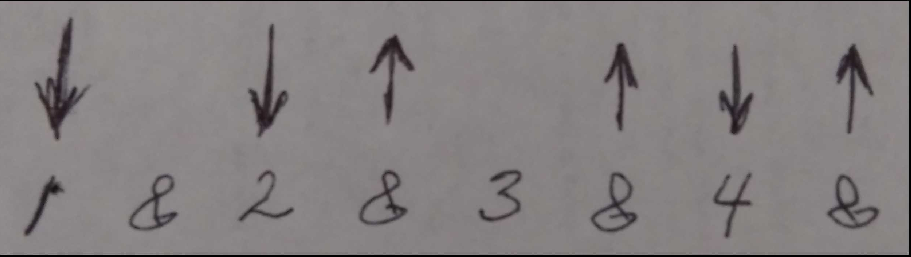 ↓ ↓ ↑ ↑ ↓ ↑
1 & 2 & 3 & 4 &